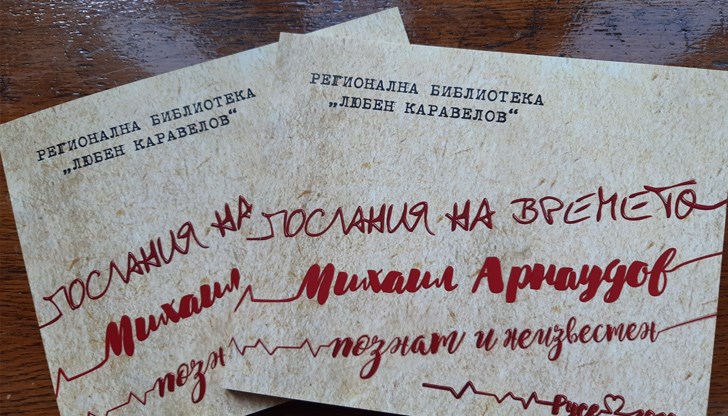 РЕГИОНАЛНА БИБЛИОТЕКА
„ЛЮБЕН КАРАВЕЛОВ“
ПОСЛАНИЯ НА
Михаил
РЕГИОНАЛНА БИБЛИОТЕКА
„ЛЮБЕН КАРАВЕЛОВ“
ПОСЛАНИЯ НА ВРЕМЕТО
Михаил Арнаудов
познат и неизвестен
Русе